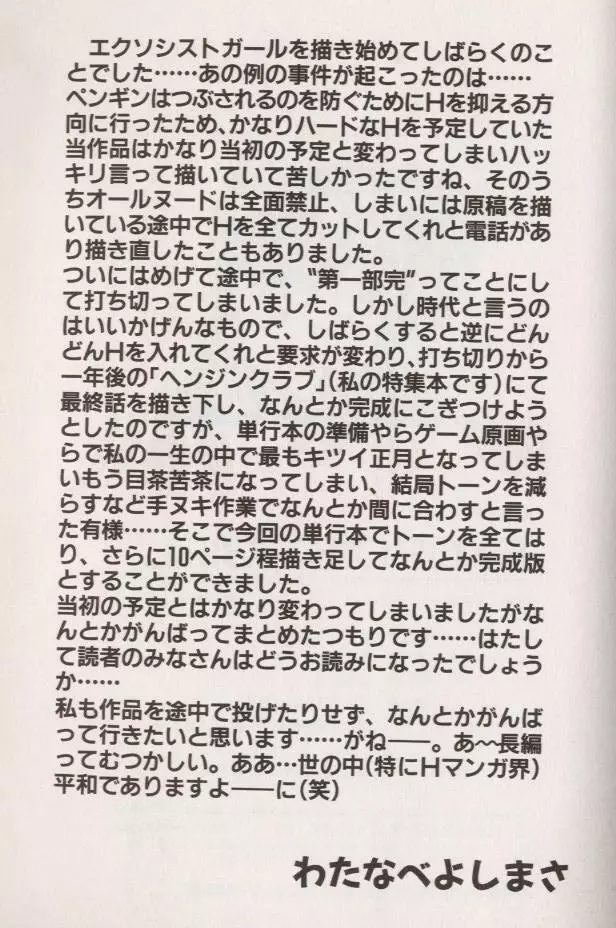 エクソシストガールを描き始めてしばらくのこ
とでした……あの例の事件が起こったのは……
ペンギンはつぶされるのを防ぐためにHを抑える方
向に行ったため、かなりハードなHを予定していた
当作品はかなり当初の予定と変わってしまいハッ
キリ言って描いていて苦しかったですね、そのう
ちオールヌードは全面禁止、しまいには原稿を描
いている途中でHを全てカットしてくれと電話があ
り描き直したこともありました。
ついにはめげて途中で、“第一部完”ってことにし
て打ち切ってしまいました。しかし時代と言うの
はいいかげんなもので、しばらくすると逆にどん
どんHを入れてくれと要求が変わり、打ち切りから
一年後の「ヘンジンクラブ」（私の特集本です）にて
最終話を描き下し、なんとか完成にこぎつけよう
としたのですが、単行本の準備やらゲーム原画や
らで私の一生の中で最もキツイ正月となってしま
いもう目茶苦茶になってしまい、結局トーンを減
らすなど手ヌキ作業でなんとか間に合わすと言っ
た有様……そこで今回の単行本でトーンを全ては
り、さらに10ページ程描き足してなんとか完成版
とすることができました。
当初の予定とはかなり変わってしまいましたがな
んとかがんばってまとめたつもりです……はたし
て読者のみなさんはどうお読みになったでしょう
か……
私も作品を途中で投げたりせず、なんとかがんば
って行きたいと思います……がね──。あ〜長編
ってむつかしい。ああ…世の中（特にHマンガ界）
平和でありますよ──に（笑）
わたなべよしまさ